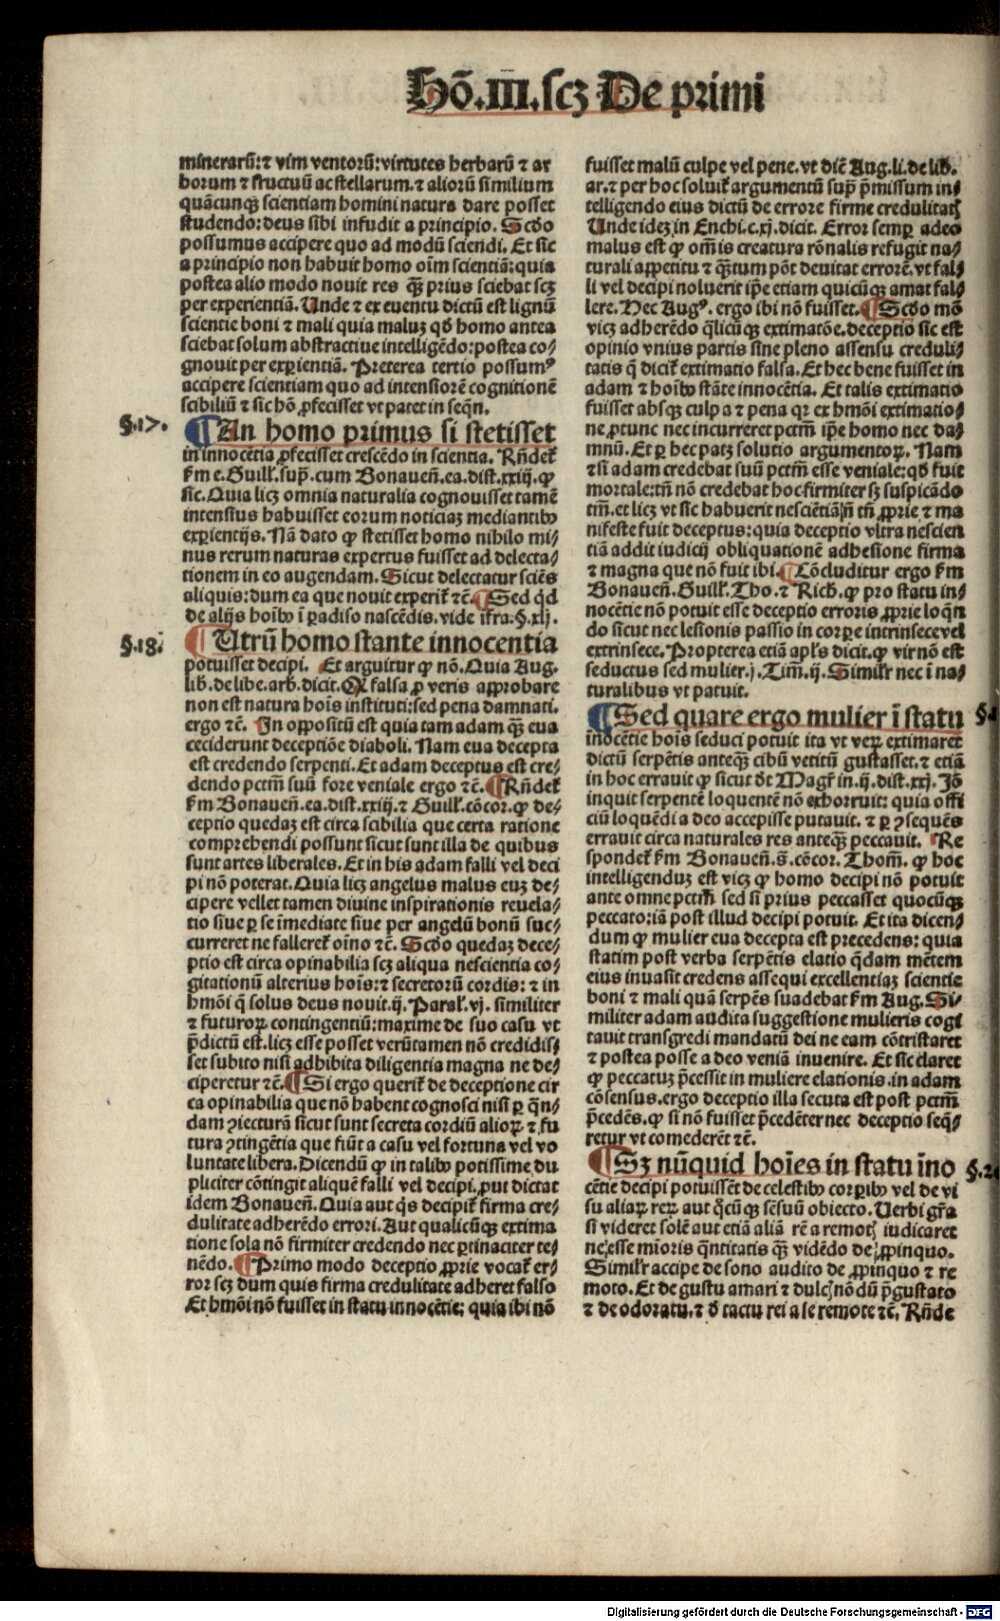 Hō.III.scꝫ De primi
minerarū: ⁊ vim ventorū: virtutes herbarū ⁊ ar
borum ⁊ fructuū ac stellarum. ⁊ aliorū similium
quācunqꝫ scientiam homini natura dare posset
studendo: deus sibi infudit a principio. Scḋo
possumus accipere quo ad modū sciendi. Et sic
a principio non habuit homo oīm scientiā: quia
postea alio modo nouit res qꝫ̄ prius sciebat scꝫ
per experientiā. Unde ⁊ ex euentu dictū est lignū
scientie boni ⁊ mali quia maluꝫ qḋ homo antea
sciebat solum abstractiue intelligēdo: postea co⸗
gnouit per experientiā. Preterea tertio possumꝰ
accipere scientiam quo ad intensiorē cognitionē
scibiliū ⁊ sic hō ꝓfecisset vt patet in seqn̄.
§.17.
¶ An homo primus si stetisset
in innocētia ꝓfecisset crescēdo in scientia. Rn̄det̄
ẜm e. Guill̄. sup̄. cum Bonauen̄. ea. dist. xxiij. ꝙ
sic. Quia licꝫ omnia naturalia cognouisset tamē
intensius habuisset eorum noticiaꝫ mediantibꝰ
experientijs. Nā dato ꝙ stetisset homo nihilo mi⸗
nus rerum naturas expertus fuisset ad delecta⸗
tionem in eo augendam. Sicut delectatur sciēs
aliquis: dum ea que nouit experit̄ ⁊c̄. ¶ Sed qd
de alijs hoībꝰ ī ꝑadiso nascēdis. vide ifra. §. xlj.
§.18.
¶ Utrū homo stante innocentia
potuisset decipi. Et arguitur ꝙ nō. Quia Aug.
lib. de libe. arb. dicit. Q falsa ꝓ veris approbare
non est natura hoīs instituti: sed pena damnati.
ergo ⁊c̄. In oppositū est quia tam adam qꝫ̄ eua
ceciderunt deceptiōe diaboli. Nam eua decepta
est credendo serpenti. Et adam deceptus est cre⸗
dendo pctm̄ suū fore veniale ergo ⁊c̄. ¶ Rn̄det̄
ẜm Bonauen̄. ea. dist. xxiij. ⁊ Guill̄. cōcor. ꝙ de⸗
ceptio quedaꝫ est circa scibilia que certa ratione
comprehendi possunt sicut sunt illa de quibus
sunt artes liberales. Et in his adam falli vel deci
pi nō poterat. Quia licꝫ angelus malus euꝫ de⸗
cipere vellet tamen diuine inspirationis reuela⸗
tio siue ꝑ se īmediate siue per angelū bonū suc⸗
curreret ne falleret̄ oīno ⁊c̄. Scḋo quedaꝫ dece⸗
ptio est circa opinabilia scꝫ aliqua nescientia co⸗
gitationū alterius hoīs: ⁊ secretorū cordis: ⁊ in
hmōi q̄ solus deus nouit. ij. Paral̄. vj. similiter
⁊ futuroꝝ contingentiū: maxime de suo casu vt
p̄dictū est. licꝫ esse posset verūtamen nō credidis⸗
set subito nisi adhibita diligentia magna ne de⸗
ciperetur ⁊c̄. ¶ Si ergo querit̄ de deceptione cir
ca opinabilia que nō habent cognosci nisi ꝑ qn̄⸗
dam ꝯiecturā sicut sunt secreta cordiū alioꝝ ⁊ fu
tura ꝯtingētia que fiūt a casu vel fortuna vel vo
luntate libera. Dicendū ꝙ in talibꝰ potissime du
pliciter cōtingit aliquē falli vel decipi. ꝓut dictat
idem Bonauen̄. Quia aut q̄s decipit̄ firma cre⸗
dulitate adherēdo errori. Aut qualicūqꝫ extima
tione sola nō firmiter credendo nec ꝑtinaciter te⸗
nēdo. ¶ Primo modo deceptio ꝓprie vocat̄ er⸗
ror scꝫ dum quis firma credulitate adheret falso
Et hmōi nō fuisset in statu innocētie: quia ibi nō
fuisset malū culpe vel pene. vt dic̄ Aug. li. de lib.
ar. ⁊ per hoc soluit̄ argumentū sup̄ p̄missum in⸗
telligendo eius dictū de errore firme credulitatꝭ
Unde ideꝫ in Enchi. c. xj. dicit. Error semꝑ adeo
malus est ꝙ om̄is creatura rōnalis refugit na⸗
turali appetitu ⁊ qꝫ̄tum pōt deuitat errorē. vt fal⸗
li vel decipi noluerit ip̄e etiam quicūqꝫ amat fal⸗
lere. Hec Augꝰ. ergo ibi nō fuisset. ¶ Scḋo mō
vicꝫ adherēdo q̄licūqꝫ extimatōe. deceptio sic est
opinio vnius partis sine pleno assensu creduli⸗
tatis q̄ dicit̄ extimatio falsa. Et hec bene fuisset in
adam ⁊ hoībꝰ stāte innocētia. Et talis extimatio
fuisset absqꝫ culpa ⁊ pena qꝛ ex hmōi extimatio⸗
ne ꝓtunc nec incurreret pctm̄ ip̄e homo nec da⸗
mnū. Et ꝑ hec patꝫ solutio argumentoꝝ. Nam
⁊ si adam credebat suū pctm̄ esse veniale: qḋ fuit
mortale: tn̄ nō credebat hoc firmiter sꝫ suspicādo
tm̄. et licꝫ vt sic habuerit nesciētiā: n̄ tn̄ ꝓprie ⁊ ma
nifeste fuit deceptus: quia deceptio vltra nescien
tiā addit iudicij obliquationē adhesione firma
⁊ magna que nō fuit ibi. ¶ Cōcluditur ergo ẜm
Bonauen̄. Guill̄. Tho. ⁊ Rich. ꝙ pro statu in⸗
nocētie nō potuit esse deceptio erroris ꝓprie loqn̄
do sicut nec lesionis passio in corpꝛe intrinsece vel
extrinsece. Propterea etiā apl̄s dicit. ꝙ vir nō est
seductus sed mulier. j. Tim̄. ij. Simil̄r nec ī na⸗
turalibus vt patuit.
¶ Sed quare ergo mulier ī statu
inocētie hoīs seduci potuit ita vt veꝝ extimaret
dictū serpētis anteqꝫ̄ cibū vetitū gustasset. ⁊ etiā
in hoc errauit ꝙ sicut ḋt Magr̄ in. ij. dist. xxj. Iō
inquit serpentē loquentē nō exhorruit: quia offi
ciū loquēdi a deo accepisse putauit. ⁊ ꝑ ꝯsequēs
errauit circa naturales res anteqꝫ̄ peccauit. Re
spondet̄ ẜm Bonauen̄. ⁊ cōcor. Thom̄. ꝙ hoc
intelligenduꝫ est vicꝫ ꝙ homo decipi nō potuit
ante omne pctm̄ sed si prius peccasset quocūqꝫ
peccato: iā post illud decipi potuit. Et ita dicen⸗
dum ꝙ mulier eua decepta est precedens: quia
statim post verba serpētis elatio q̄dam mētem
eius inuasit credens assequi excellentiaꝫ scientie
boni ⁊ mali quā serpēs suadebat ẜm Aug. Si⸗
militer adam audita suggestione mulieris cogi
tauit transgredi mandatū dei ne eam cōtristaret
⁊ postea posse a deo veniā inuenire. Et sic claret
ꝙ peccatuꝫ p̄cessit in muliere elationis. in adam
cōsensus. ergo deceptio illa secuta est post pctm̄
p̄cedēs. ꝙ si nō fuisset p̄cedēter nec deceptio seq̄⸗
retur vt comederēt ⁊c̄.
¶ Sꝫ nūquid hoīes in statu īno
cētie decipi potuissēt de celestibꝰ corꝑibꝰ vel de vi
su aliaꝝ reꝝ aut q̄cūqꝫ sēsuū obiecto. Uerbi gr̄a
si videret solē aut etiā aliā rē a remotꝭ iudicaret
necesse mīoris q̄ntitatis qꝫ̄ vidēdo de ꝓpinquo.
Simil̄r accipe de sono audito de ꝓpinquo ⁊ re
moto. Et de gustu amari ⁊ dulcꝭ nōdū p̄gustato
⁊ de odoratu. ⁊ ḋ tactu rei a se remote ⁊c̄. Rn̄de